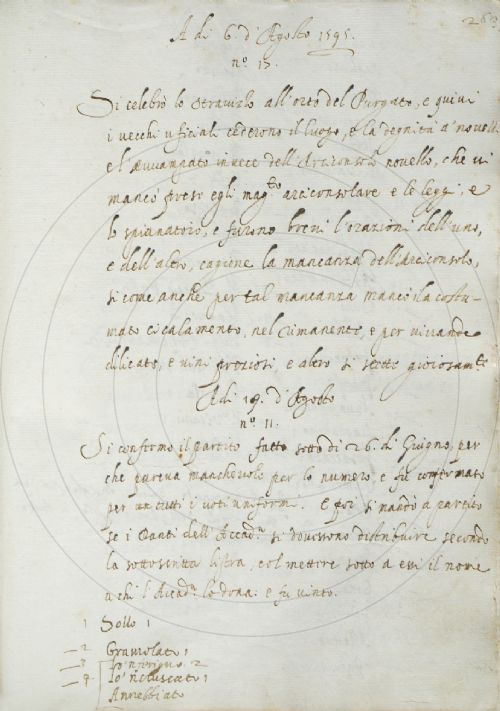 263
A di 6. d'Agosto 1595.
n.º 15.
Si celebrò lo stravizzo all'orto del Purgato, e quivi
i vecchi uficiali cederono il luogo, e la degnità a' novelli
e l' in vece dell'Arciconsolo novello, che vi
mancò prese egli mag.to arciconsolare e le leggi, e
lo spianatoio, e furono brevi l'orazioni dell'uno,
e dell'altro, cagione la mancanza dell'Arciconsolo,
si come anche per tal mancanza mancò il costu-
mato cicalamento, nel rimanente e per vivande
dilicate, e vini preziosi, e altro si stette gioiosam.te
Adi 19. d'Agosto
n.º 11.
Si confermò il partito fatto sotto di 26. di Giugno, per
che pareva manchevole per lo numero, e fu confermato
per tutti i voti uniformi. E poi si mandò a partito
se i Danti dell'Accad.a si dovessono distribuire secondo
la sottoscritta listra, col mettere sotto a essi il nome
a chi l'Accad.a lo dona: e fu vinto.
1 Sollo 1
2 Gramolato 1
3 Lo 'nferigno 2
4 Lo 'ncruscato 1
Annebbiato